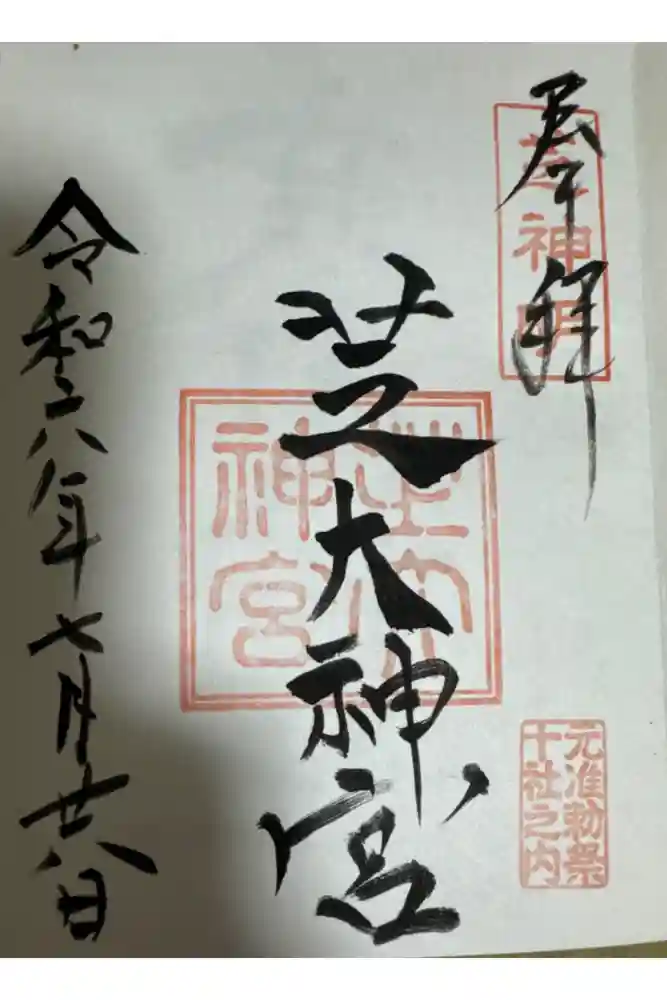 奉拝
芝神明
芝大神宮
芝大神宮
元准勅祭
十社之内
令和六年七月廿八日